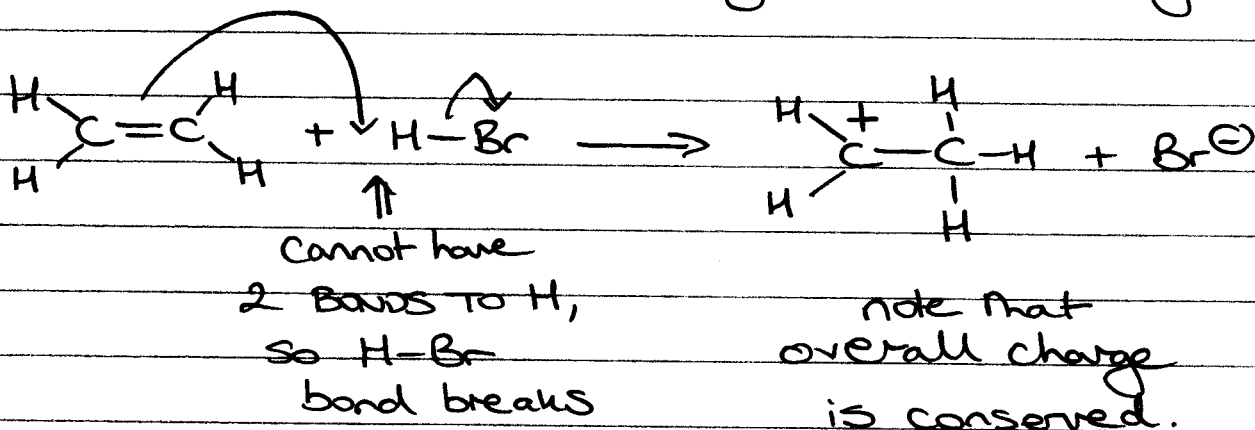 H H H
H C=C H + H-Br ⟶ H C⁺-C-H + Br⊖
H H H H
Cannot have
2 BONDS TO H,
so H-Br
bond breaks
note that
overall charge
is conserved.